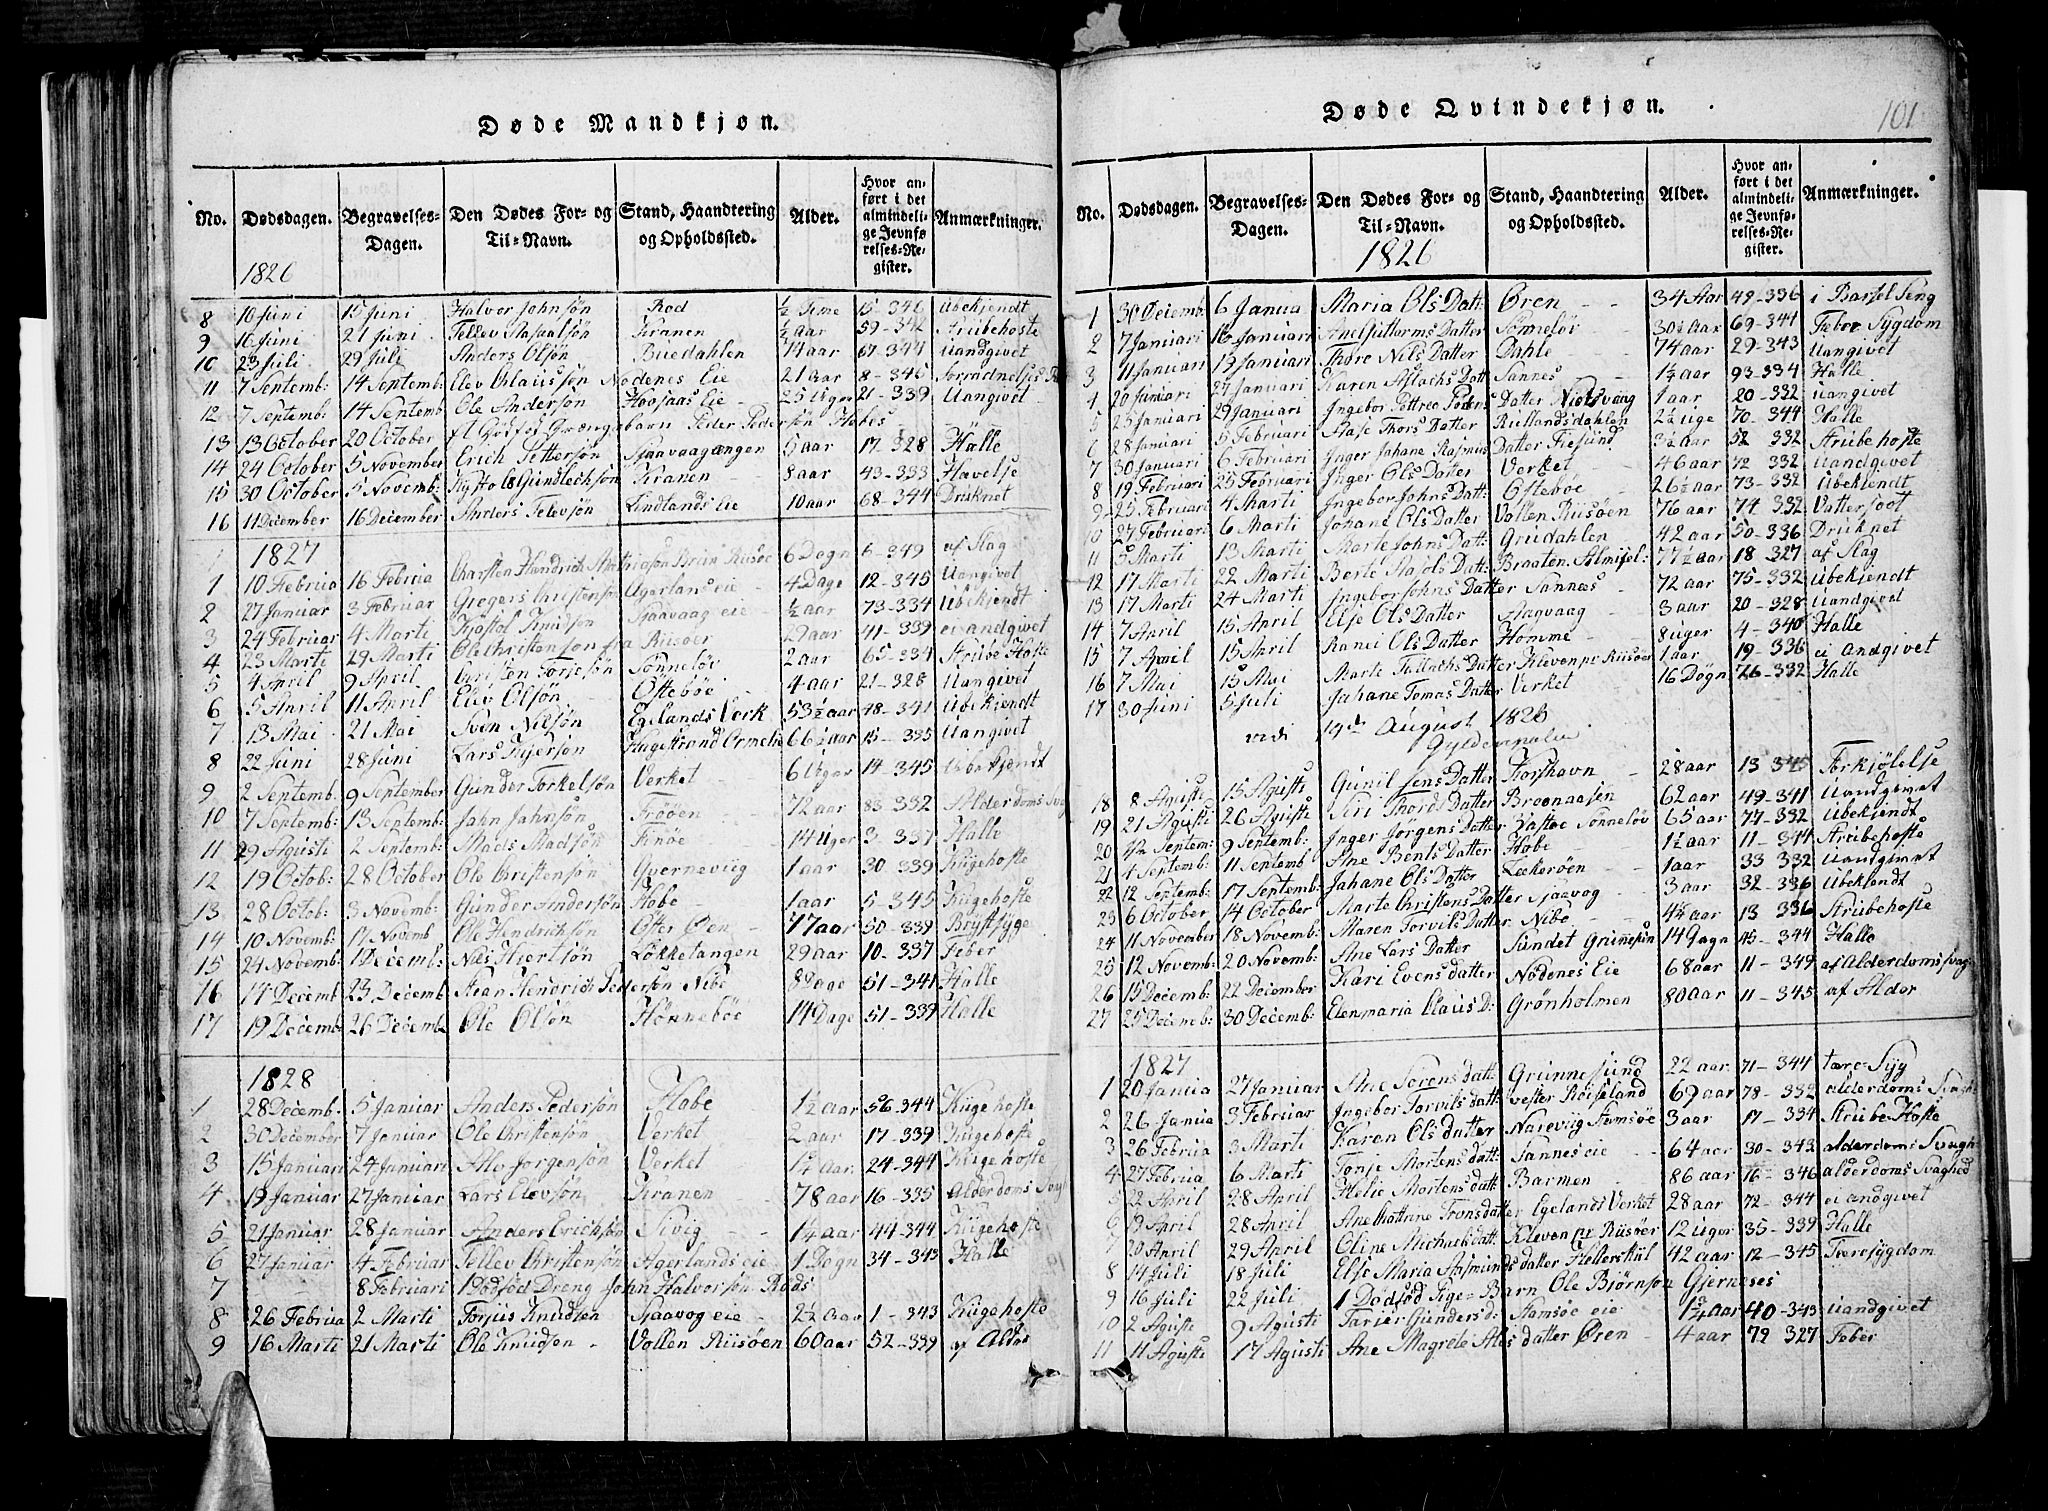 Døde Mandkjøn.
No. Dødsdagen. Begravelses-Dagen. Den Dødes For- og Til-Navn. Stand, Haandtering og Opholdssted. Alder. Hvor anført i det almindelige Jevnførelses-Register. Anmærkninger.
1826
8 10 Juni 15 Juni Halvor Johnsøn Rød ½ Time 15-346 Ubekjendt
9 16 Juni 21 Juni Tellev Kranen ½ aar 59-342 Strubehoste
10 23 Juli 29 Juli Anders Olsøn Buedahlen 14 aar 67-344 Uandgivet
11 7 Septemb: 14 Septemb: Elev Claussøn Nødenes Eie 21 aar 8-346
12 7 Septemb: 14 Septemb Ole Andersøn Eie 25 Uger 21-339 Uangivet
Peder Pedersøn Habes
13 13 October 20 October Erich Pettersøn 5 aar 17-328 Hälle
14 24 October 5 November Kranen 8 aar 43-333 Havelse
15 30 October 5 Novemb: Gundlechsøn Lindlands eie 10 aar 68-344 Druknet
16 11 December 16 December Anders Televsøn
1827
1 10 Februa 16 Februa Carsten Hendrich Riisøe 6 Døgn 5-349 af Slag
2 27 Januar 3 Februar Gregers Christensøn Agerlands eie 4 Dage 12-345 Uangivet
3 24 Februar 4 Marti Kjøstol Knudsøn Sjaavaag eie ½ aar 73-334 Ubekjendt
4 23 Marti 29 Marti Ole Christensøn fra Riisøer 29 aar 41-339 ei andgivet
5 4 April 9 April Christen Torjesøn Sønneløv 2 aar 65-334 Strube Hoste
6 5 April 11 April Elev Olsøn Østebøe 4 aar 21-328 Uangivet
7 13 Mai 21 Mai Sven Nilsøn Egelands Verk 53½ aar 48-341 Ubekjendt
8 22 Juni 28 Juni Lars 66½ aar 15-335 Uangivet
9 2 Septemb. 9 September Gunder Torkelsøn Verket 6 Uger 14-345 Ubekjendt
10 7 Septemb: 13 Septemb: Jahn Jahnsøn Frøøen 72 aar 83-332 Alderdoms Svag
11 29 Agusti 2 Septemb: Mads Madsøn Finøe 14 Uger 3-337 Halle
12 19 Octob: 28 October Ole Christensøn Qverneviig 1 aar 30-339 Kigehoste
13 28 Octob: 3 Novemb: Gunder Andersøn Habe 1 aar 5-345 Kigehoste
14 10 Novemb: 17 Novemb Ole Hendrichsøn Øster Øen 77 aar 50-339 Brystsyge
15 24 Novemb: 1 Decemb: Nils Hiertsøn Løkketangen 29 aar 10-337 Feber
16 17 Decemb 23 Decemb Hendrich Pedersøn Nibe 8 Dage 51-341 Halle
17 19 Decemb: 26 Decemb Ole Olsøn Hønnebøe 14 Dage 51-339 Halle
1828
1 28 Decemb: 5 Januar Anders Pedersøn Habe 1½ aar 56-344 Kigehoste
2 30 December 7 Januar Ole Christensøn Verket 2 aar 17-339 Kigehoste
3 15 Januari 24 Januari Alv Jørgensøn Verket 1¼ aar 24-344 Kigehoste
4 19 Januar 27 Januar Lars Elevsøn Kranen 78 aar 16-335 Alderdoms Svag
5 21 Januar 28 Januar Anders Erichsøn Sivig 1¼ aar 44-344 Kigehoste
6 27 Januar 4 Februar Tellev Christensøn Agerlands eie 1 Døgn 34-343 Halle
7 8 Februari 1 Dødfød Dreng John Halvorsøn Røds
8 26 Februa 2 Marti Torjus Knudsen Sjaavog eie 2½ aar 1-343 Kigehoste
9 16 Marti 21 Marti Ole Knudsøn Vollen Riisøen 60 aar 52-339 af
Døde Qvindekjøn.
101
No. Dødsdagen. Begravelses-Dagen. Den Dødes For- og Til-Navn. Stand, Haandtering og Opholdssted. Alder. Hvor anført i det almindelige Jevnførelses-Register. Anmærkninger.
1826
1 30 Decemb: 6 Janua Maria Ols Datt: Øren 34 Aar 49-336 i Barsel Seng
2 7 Januari 16 Januari Ane Guttorms Datter Sønneløv 30½ aar 69-341 Feber Sygdom
3 11 Januari 19 Januari Thore Nils Datter Dahle 74 aar 29-343 Uangivet
4 20 Januari 27 Januari Karen Aslachs Datt Sannes 1½ aar 93-334 Halle
5 25 Januari 29 Januari Ingebor Peders Datter 1 aar 20-332 Uangivet
6 28 Januari 5 Februari Aase Thors Datter 2½ uge 70-344 Halle
7 30 Januari 6 Februari Inger Johane Rasmus Datter Fiesund 3½ aar 52-332 Strubehoste
8 19 Februari 25 Februari Inger Ols Datter Verket 46 aar 72-332 Uandgivet
9 25 Februari 4 Marti Ingebor Johns Datt: Østebøe 26½ aar 73-332 Ubekjendt
10 27 Februari 6 Marti Johane Ols Datter Vollen Riisøen 76 aar 74-332 Vattersoot
11 5 Marti 13 Marti Marte Johns Datt: Grudahlen 42 aar 50-336 Druknet
12 17 Marti 22 Marti Berte Datt: Braaten 77½ aar 18-327 af Slag
13 17 Marti 24 Marti Ingebor Johns Datter Sannes 72 aar 75-332 Ubekjendt
14 7 April 15 April Else Ols Datter 3 aar 20-328 Uandgivet
15 7 April 15 April Ranei Ols Datter Homme 8 uger 4-340 Halle
16 7 Mai 15 Mai Marte Tallachs Datter Kleven pr Riisøer 1 aar 19-336 ei andgivet
17 30 Juni 5 Juli Jahane Tomas Datter Verket 16 Døgn 76-332 Halle
vidi 19de August 1826
Gyldenpalm
18 8 Agusti 15 Agusti Gunil Jens Datter Korshavn 28 aar 13-345 Forkjølelse
19 21 Agusti 26 Agusti Siri Thords Datter Broonaasen 62 aar 49-341 Uandgivet
20 Septem: 9 Septemb: Inger Jørgens Datter Sønneløv 65 aar 77-332 Ubekjendt
21 4 Septemb: 11 Septemb Ane Bents Datter Habe 1½ aar 11-344 Strubehoste
22 12 Septemb: 17 Septemb: Jahane Ols Datter Lekerøen 1 aar 33 332 Uandgivet
23 6 October 14 October Marte Christens Datter Sjaavog 3 aar 32-336 Ubekjendt
24 11 November 18 Novemb: Maren Torvils Datter Nibe 4½ aar 13 336 Strubehoste
25 12 Novemb: 20 Novemb: Ane Lars Datter Sundet Grinnesun 14 Dagn 45-344 Halle
26 15 Decemb: 22 December Kari Evens datter Nødenes Eie 68 aar 11-349 af Alderdoms svag
27 25 Decemb: 30 Decemb: Elenmaria Claus D: Grønholmen 80 aar 11-345 af Alder
1827
1 20 Janua 27 Januar Ane Sørens datt: Grunnesund 22 aar 71-344 tære-Syg
2 26 Janua 3 Februar Ingebor Torvils datt vester Røiseland 69 aar 78-332 alderdoms Svagh
3 26 Februa 3 Marti Karen Ols datter Nareviig Stomsøe 3 aar 17-334 Strube Hoste
4 27 Februa 6 Marti Tonje Mortens datt: Sannes eie 64 aar 30-343 alderdoms Svagh
5 22 April 28 April Helie Mortens datt Barmen 86 aar 16-346 alderdoms Svaghed
6 19 April 28 April Ane Kattrine Trons datter Egelands Verket 28 aar 72-344 ei andgivet
7 20 April 29 April Oline Michaels datt: Kleven pr Riisøer 12 uger 35-339 Halle
8 14 Juli 18 Juli Else Maria Asmunds datter 42 aar 12-345 Tæresygdom
9 16 Juli 22 Juli 1 Dødfød Pige-Barn Ole Bjørnsøn Gjernæses
10 2 Agusti 9 Agusti Tarjer Gunders d: Stamsøe eie 1¼ aar 40-343 Uandgivet
11 11 Agusti 17 Agusti Ane Magrete Als datter Øren 4 aar 79 327 Feber